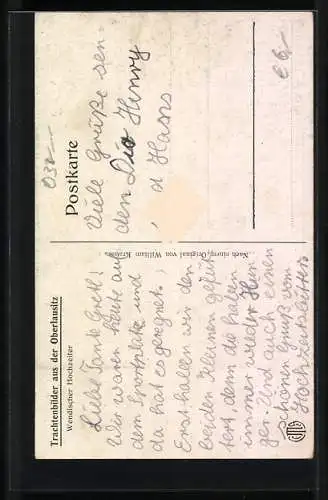 Trachtenbilder aus der Oberlausitz
Wendischer Hochzeiter
Liebe Tante Gretl!
Wir waren heute auf
dem Sportplatz und
da hat es geregnet.
Erst haben wir den
beiden Kleinen gefüt
tert, denn die haben
immer wieder Hun
ger. Und auch einen
schönen Gruß vom
Hochzeitsbitter
Nach einem Original von William Krause
Postkarte
Viele Grüße sen-
den Dio Hinry
d Hans